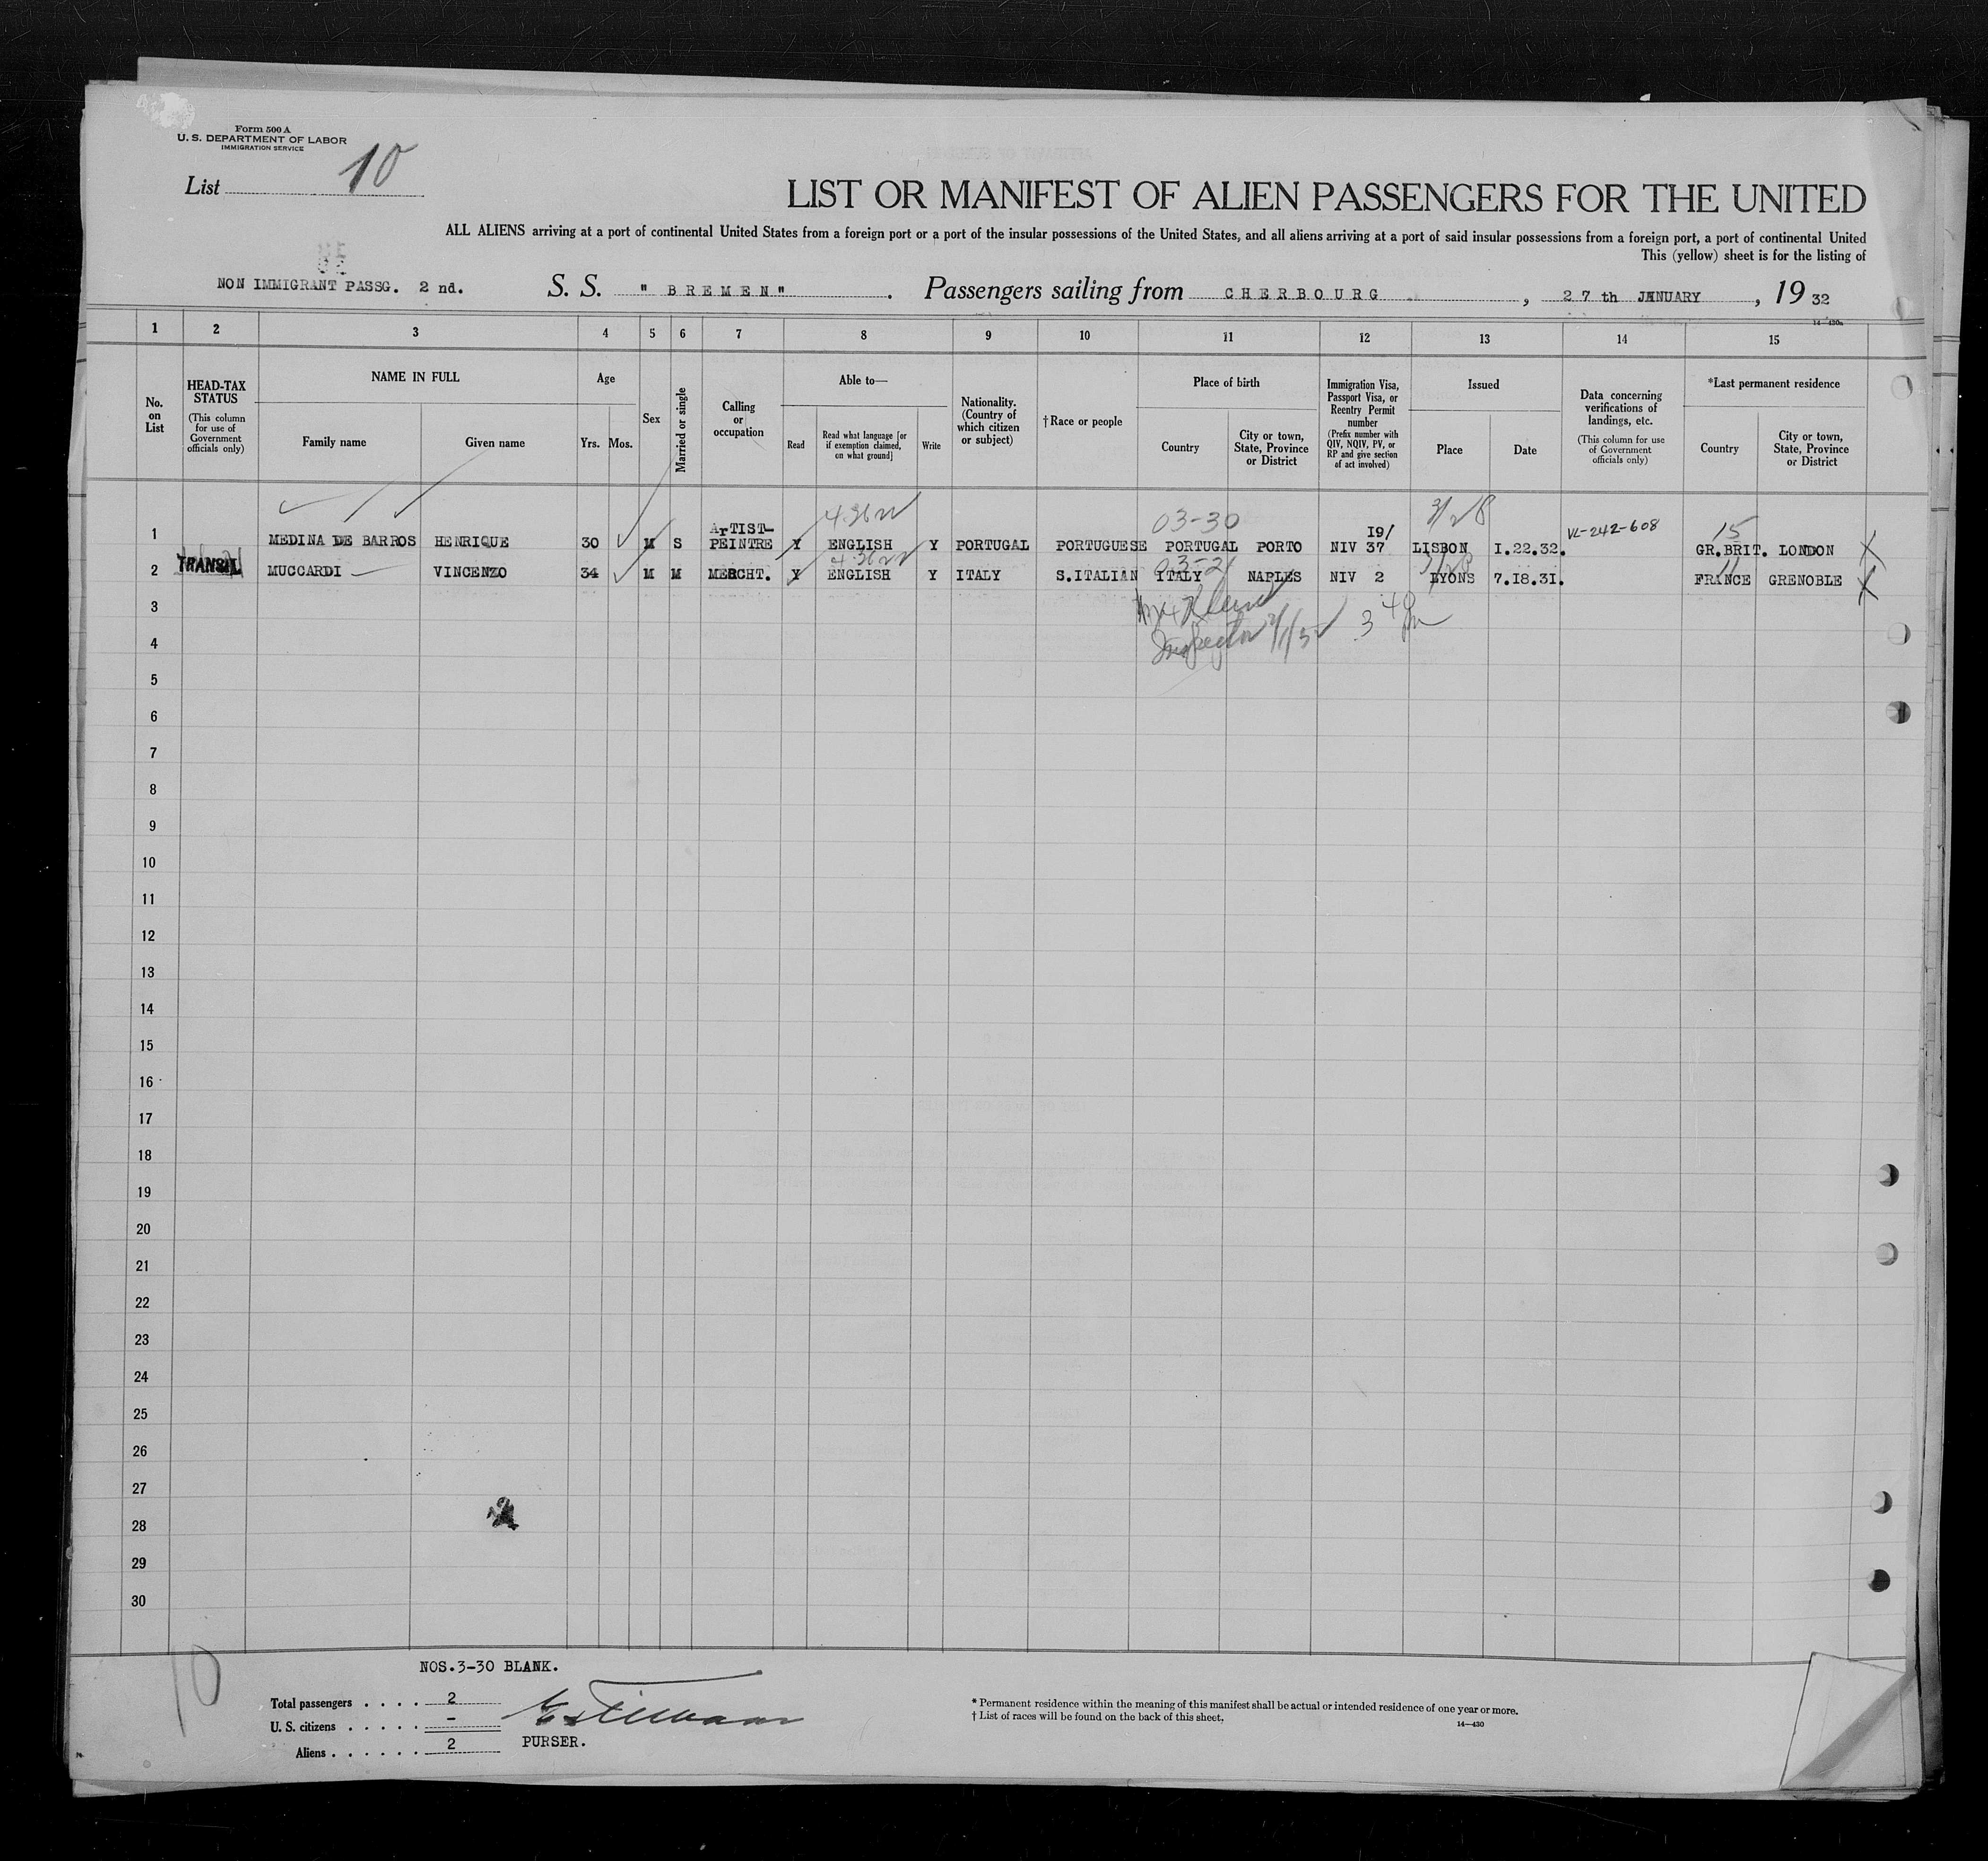 Form 500 A
U. S. DEPARTMENT OF LABOR
IMMIGRATION SERVICE
List 10
LIST OR MANIFEST OF ALIEN PASSENGERS FOR THE UNITED
ALL ALIENS arriving at a port of continental United States from a foreign port or a port of the insular possessions of the United States, and all aliens arriving at a port of said insular possessions from a foreign port, a port of continental United
This (yellow) sheet is for the listing of
NON IMMIGRANT PASSG. 2 nd. S. S. " BREMEN" . Passengers sailing from CHERBOURG , 27 th JANUARY , 19 32
14—430a
1 2 3 4 5 6 7 8 9 10 11 12 13 14 15
No. on List
HEAD-TAX STATUS
(This column for use of Government officials only)
NAME IN FULL
Family name
Given name
Age
Yrs. Mos.
Sex
Married or single
Calling or occupation
Able to—
Read
Read what language [or if exemption claimed, on what ground]
Write
Nationality. (Country of which citizen or subject)
†Race or people
Place of birth
Country
City or town, State, Province or District
Immigration Visa, Passport Visa, or Reentry Permit number
(Prefix number with QIV, NQIV, PV, or RP and give section of act involved)
Issued
Place
Date
Data concerning verifications of landings, etc.
(This column for use of Government officials only)
*Last permanent residence
Country
City or town, State, Province or District
03-30 VL-242-608 15
1 MEDINA DE BARROS HENRIQUE 30 M S ArTIST-PEINTRE Y ENGLISH Y PORTUGAL PORTUGUESE PORTUGAL PORTO NIV 19/37 LISBON I.22.32. GR.BRIT. LONDON X
2 TRANSIT MUCCARDI VINCENZO 34 M M MERCHT. Y ENGLISH Y ITALY S.ITALIAN ITALY NAPLES NIV 2 LYONS 7.18.31. FRANCE GRENOBLE X
3
4 Inspector
5
6
7
8
9
10
11
12
13
14
15
16
17
18
19
20
21
22
23
24
25
26
27
28
29
30
10
NOS.3-30 BLANK.
Total passengers . . . . 2
U. S. citizens . . . . . –
Aliens . . . . . . 2
PURSER.
* Permanent residence within the meaning of this manifest shall be actual or intended residence of one year or more.
† List of races will be found on the back of this sheet.
14—430